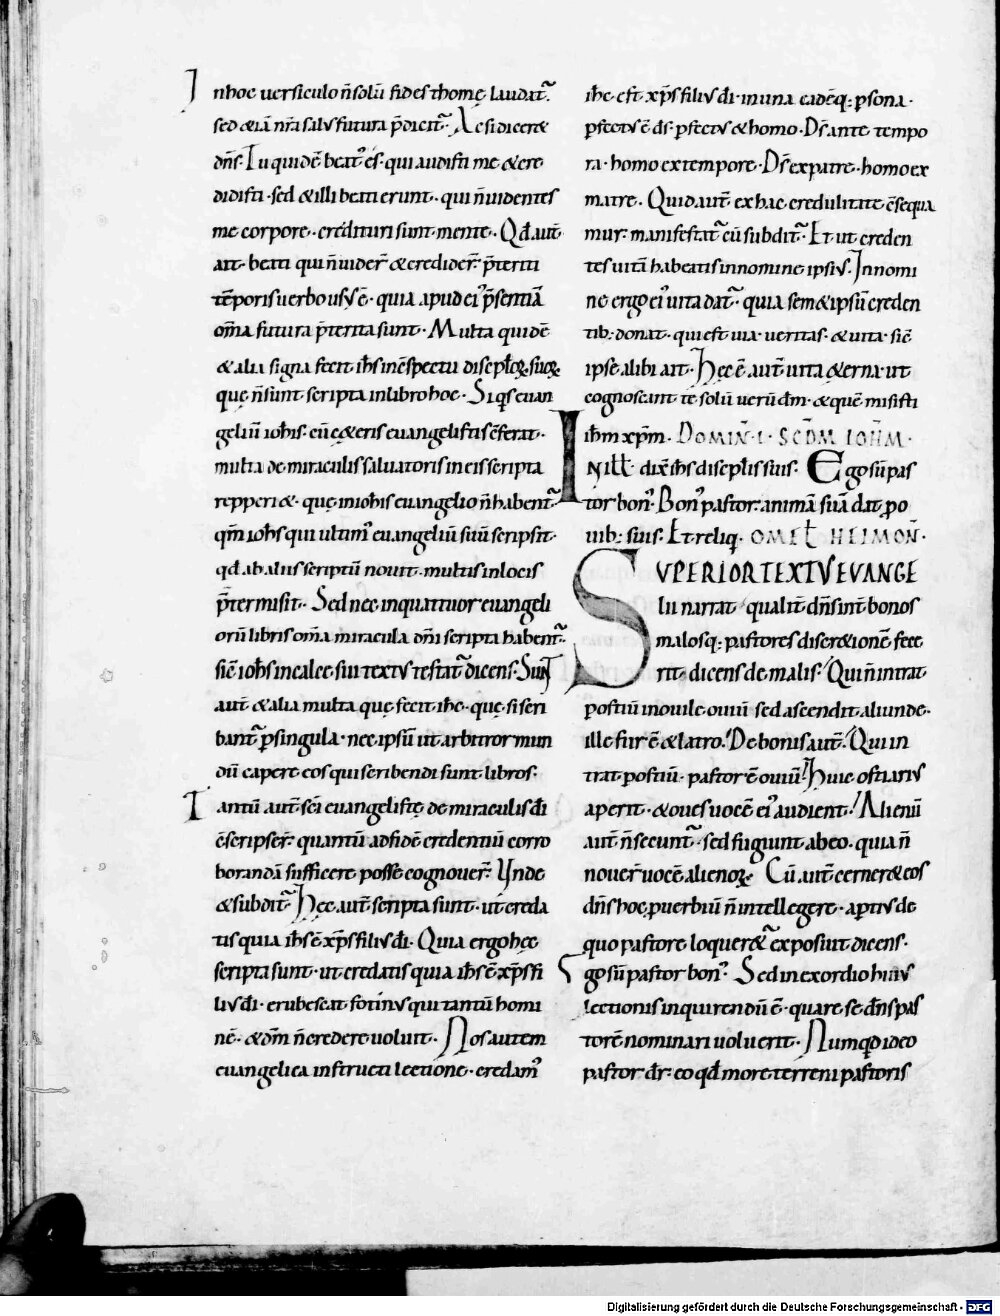 In hoc uersiculo n̄ solū fides thomę laudat᷑.
sed & iā nr̄a salus futura p̄dicit᷑. Ac si dicer&
dn̄s. Tu quidē beat᷒ es. qui audisti me & cre
didisti. sed & illi beati erunt. qui n̄ uidentes
me corpore. credituri sunt mente. Qđ aut̄
ait. beati qui n̄ uider̄ & credider̄. p̄teriti
tēporis uerbo usus ē. quia apud eū p̄sentia
om̄a futura p̄terita sunt. Multa quidē
& alia signa fecit ihs̄ in c̄spectu discipłoꝝ suoꝝ.
quę n̄ sunt scripta in libro hoc. Si q̄s euan
geliū ioh̄is. cū cęteris euangelistis c̄ferat.
multa de miraculis saluatoris in eis scripta
repperi&. quę in ioh̄is euangelio n̄ habent᷑.
qm̄ ioh̄s qui ultim᷒ euangeliū suū scripsit.
qđ ab aliis scriptū nouit. multis in locis
p̄termisit. Sed nec in quattuor euangeli
orū libris om̄a miracula dn̄i scripta habent᷑.
sic̄ ioh̄s in calce sui textus testat᷑ dicens. Sunt
aut̄ & alia multa quę fecit ihc̄. quę si scri
bant᷑ ꝑ singula. nec ipsū ut arbitror mun
dū capere eos qui scribendi sunt libros.
Tantū aut̄ sc̄i euangelistę de miraculis đi
c̄scripser̄. quantū ad fidē credentiū corro
borandā sufficere posse cognouer̄. Unde
& subdit᷑. Hęc aut̄ scripta sunt. ut creda
tis quia ihs̄ ē xp̄s filius đi. Quia ergo hęc
scripta sunt. ut credatis quia ihs̄ ē xp̄s fi
lius đi. erubescat fotinus qui tantū homi
nē. & dm̄ n̄ credere uoluit. Nos autem
euangelica instructi lectione. credam᷒
ihc̄ est xp̄s filius đi. in una eadēq; ꝑsona.
ꝑfectus ē ds̄. ꝑfectus & homo. Ds̄ ante tempo
ra. homo ex tempore. Ds̄ ex patre. homo ex
matre. Quid aut̄ ex hac credulitate c̄sequa
mur. manifestat᷑ cū subdit᷑. Et ut creden
tes uitā habeatis in nomine ipsius. In nomi
ne ergo ei᷒ uita dat᷑. quia sem&ipsū creden
tib; donat. qui est uia. ueritas. & uita. sic̄
ipse alibi ait. Hęc ē aut̄ uita ęterna. ut
cognoscant te solū uerū dm̄. & quē misisti
ihm̄ xp̄m. DOMIN̄. I. SCD̄M IOH̄M.
IN illt̄. dix̄ ihs̄ discipłis suis. Ego sū pas
tor bon᷒. Bon᷒ pastor. animā suā dat ꝓ o
uib; suis. Et reliq̄. OMEŁ. HEIMON̄.
SUPERIOR TEXTUS EVANGE
lii narrat qualit̄ dn̄s int̄ bonos
malosq; pastores discr&ionē fece
rit. dicens de malis. Qui n̄ intrat
ꝑ ostiū in ouile ouiū sed ascendit aliunde.
ille fur ē & latro. De bonis aut̄. Qui in
trat ꝑ ostiū. pastor ē ouiū. Huic ostiarius
aperit. & oues uocē ei᷒ audient. Alienū
aut̄ n̄ secunt᷑. sed fugiunt ab eo. quia n̄
nouer̄ uocē alienoꝝ. Cū aut̄ cerner& eos
dn̄s hoc ꝓuerbiū n̄ intellegere. aptius de
quo pastore loquer&᷑ exposuit dicens.
Ego sū pastor bon᷒. Sed in exordio huius
lectionis inquirendū ē. quare se dn̄s pas
torē nominari uoluerit. Numqđ ideo
pastor dr̄. eo qđ more terreni pastoris
Digitalisierung gefördert durch die Deutsche Forschungsgemeinschaft - DFG